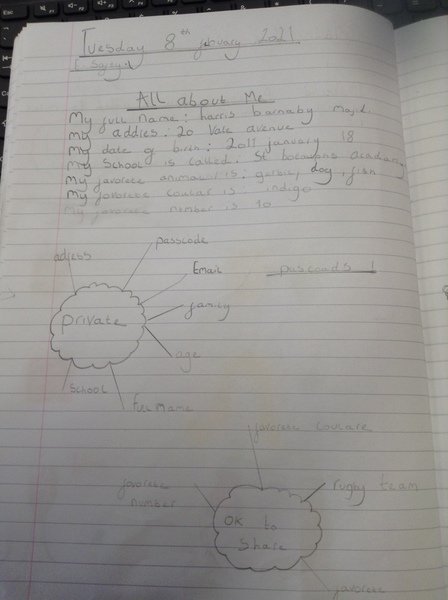 Tuesday 8th 2021
All about Me
My full name: harris barnaby
My addres: 20 Vale avenue
My date of birth: 2011 january 18
My School is called: St academy
My favorete is: dog, fish
My favorete coular is: indigo
My favorete number is 10
passcode
adress
Email
family
private
age
School
full name
favorete coulare
favorete
number
rugby team
OK to
Share
favorete